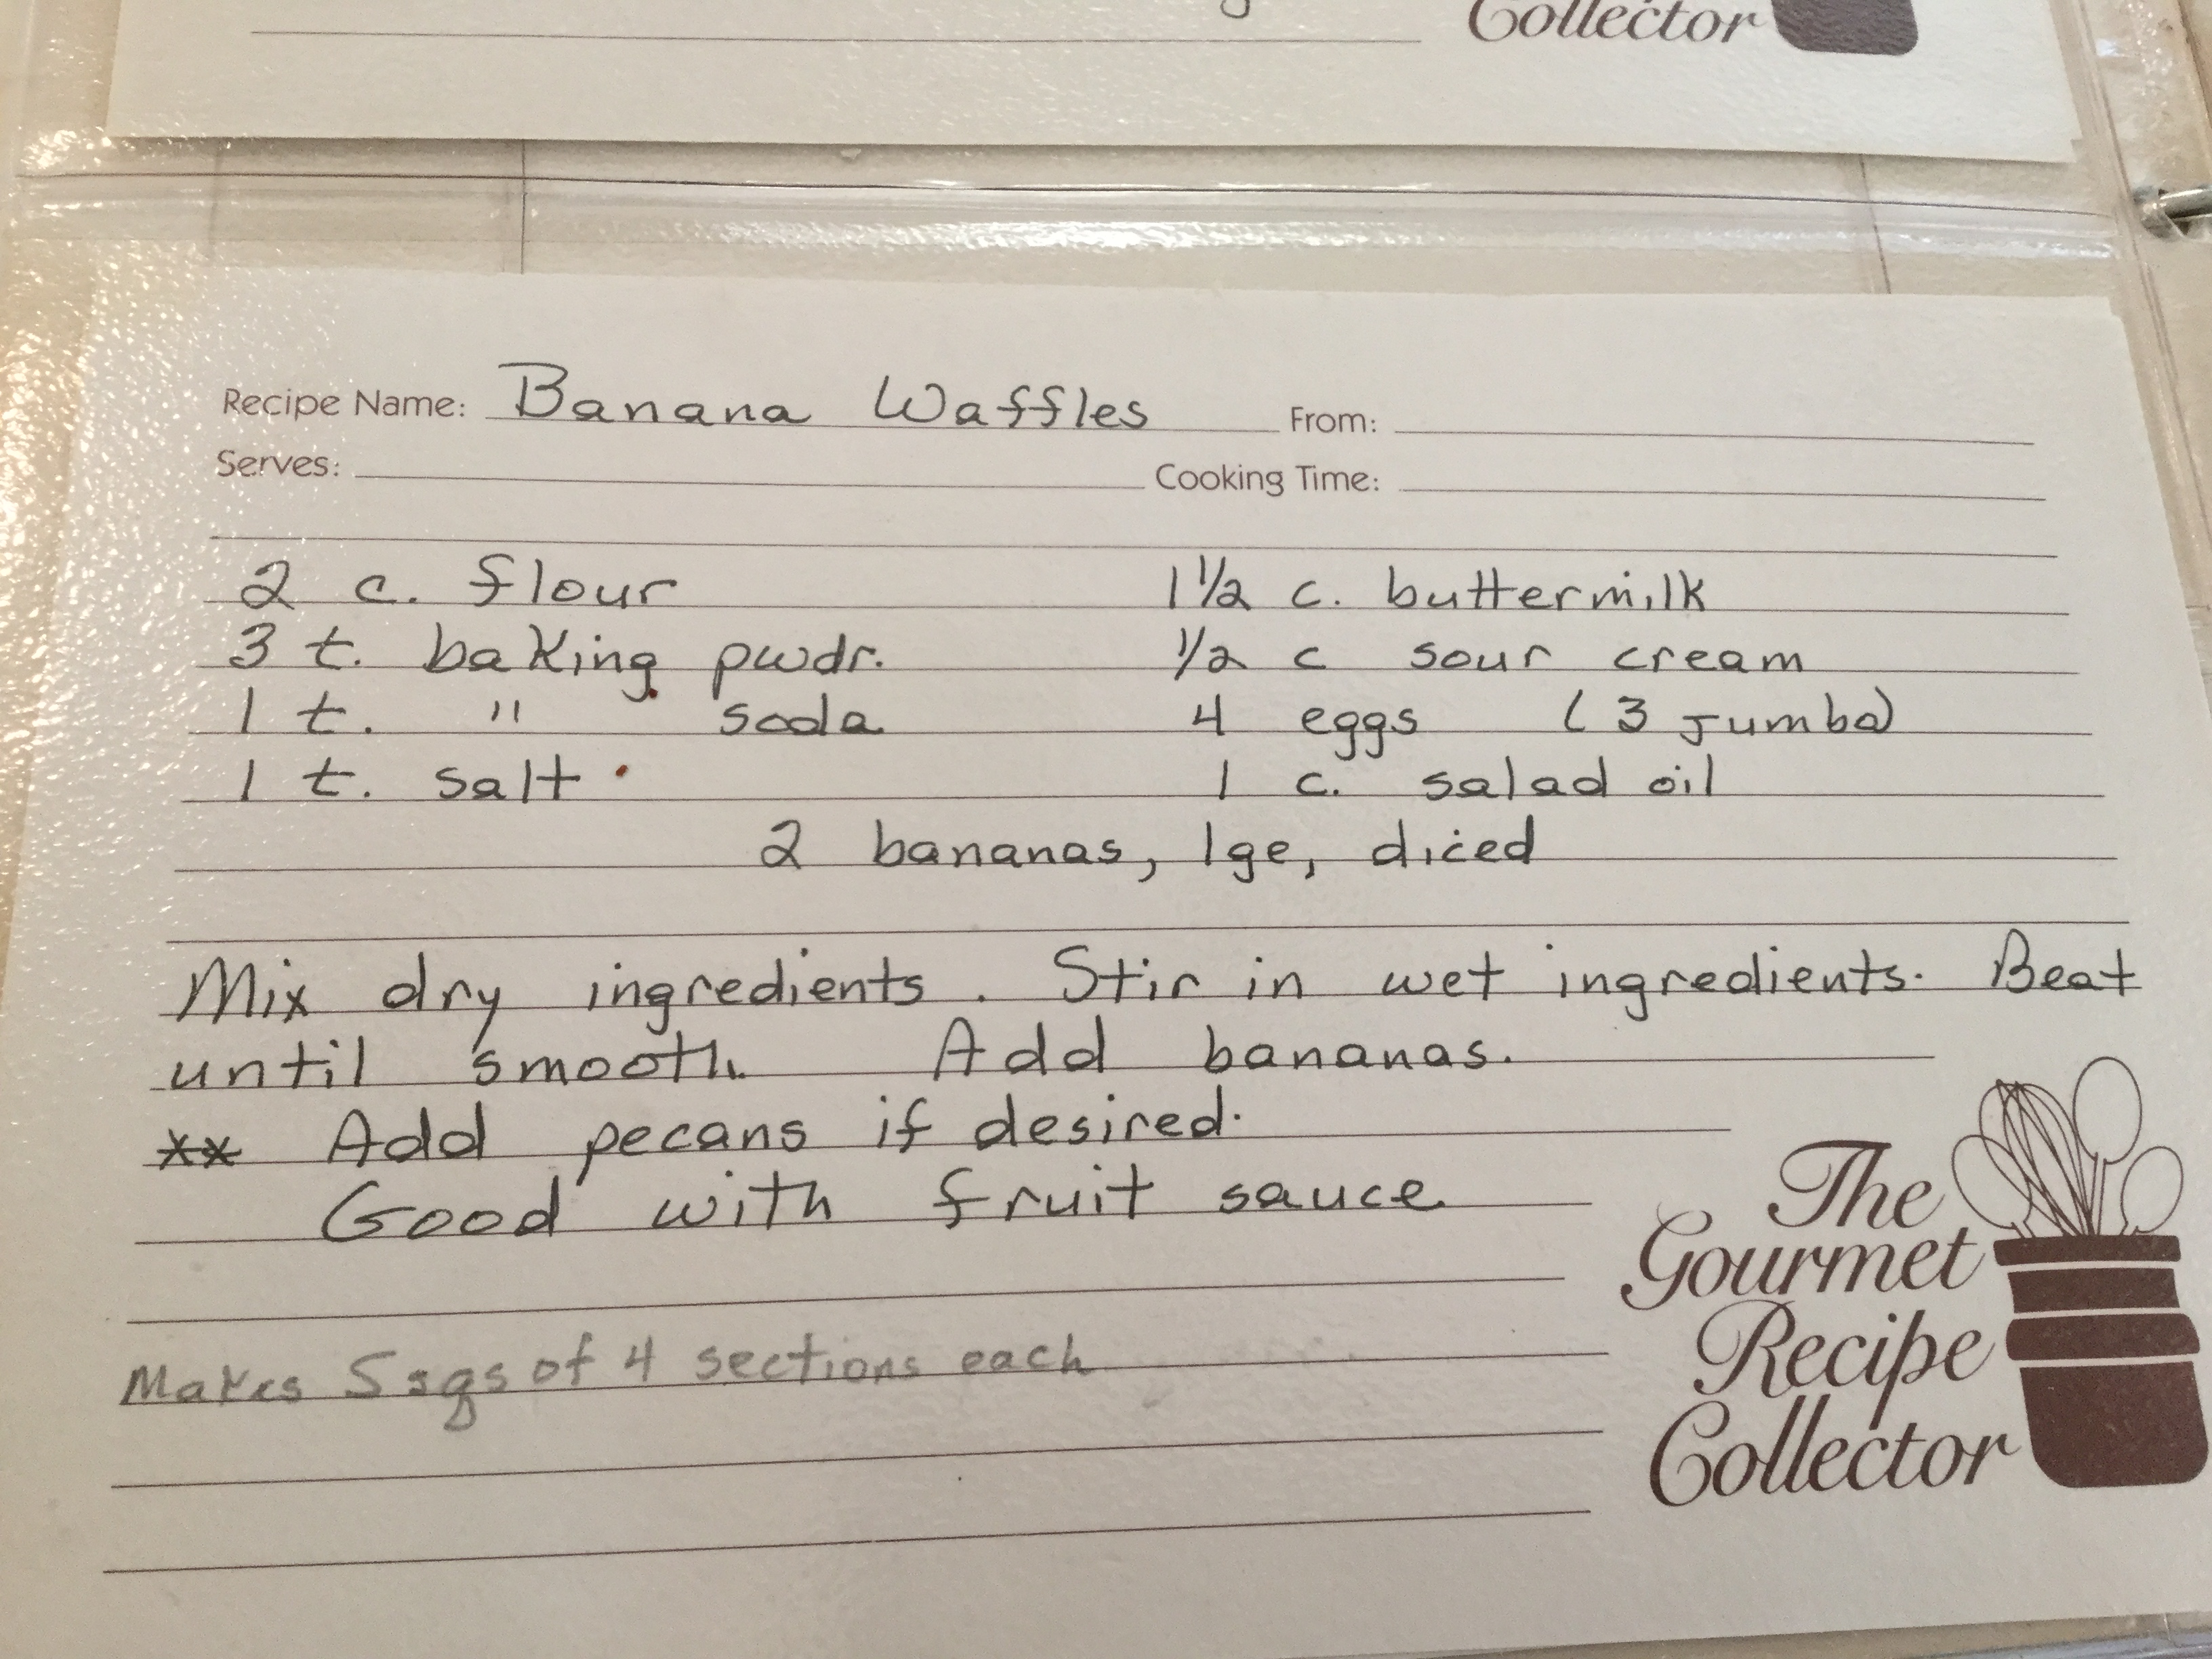 Collector
Recipe Name: Banana Waffles From:
Serves: Cooking Time:
2 c. flour 1 1/2 c. buttermilk
3 t. baking pwdr. 1/2 c sour cream
1 t. " soda 4 eggs (3 Jumbo)
1 t. salt 1 c. salad oil
2 bananas, lge, diced
Mix dry ingredients. Stir in wet ingredients. Beat
until smooth. Add bananas.
** Add pecans if desired.
Good with fruit sauce
Makes 5 sqs of 4 sections each
The
Gourmet
Recipe
Collector